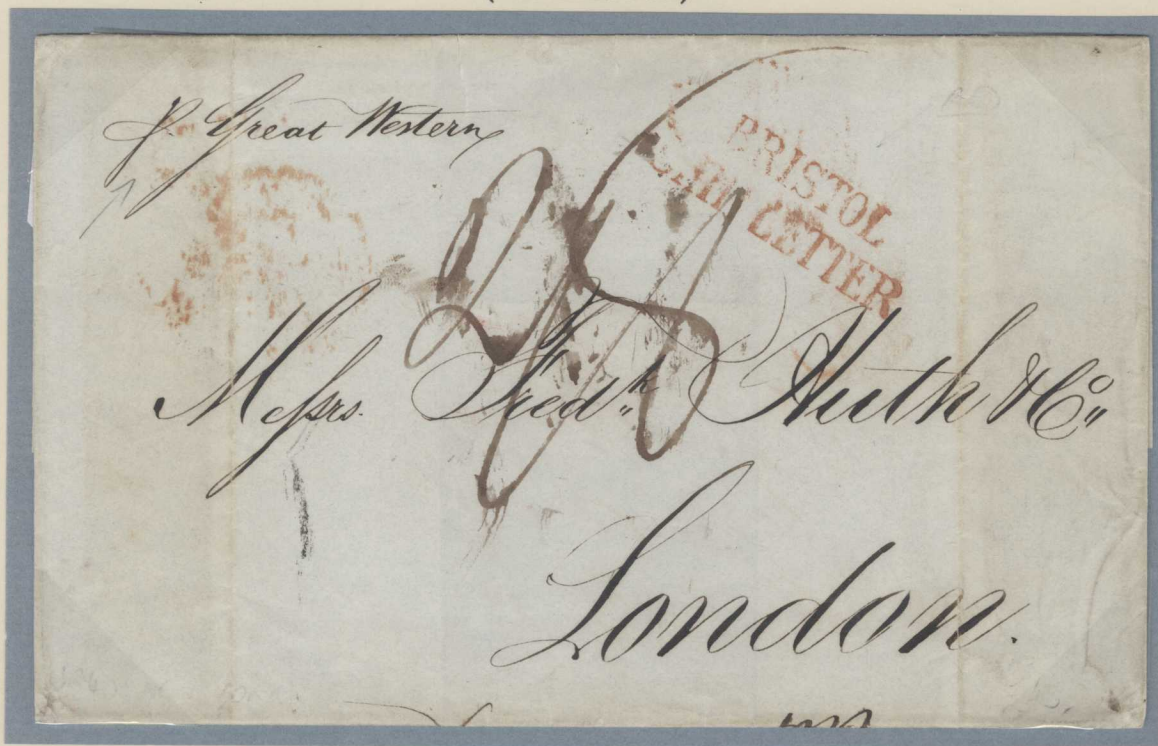 p. Great Western
BRISTOL
SHIP LETTER
Messrs. Fredk Huth & Co
London.